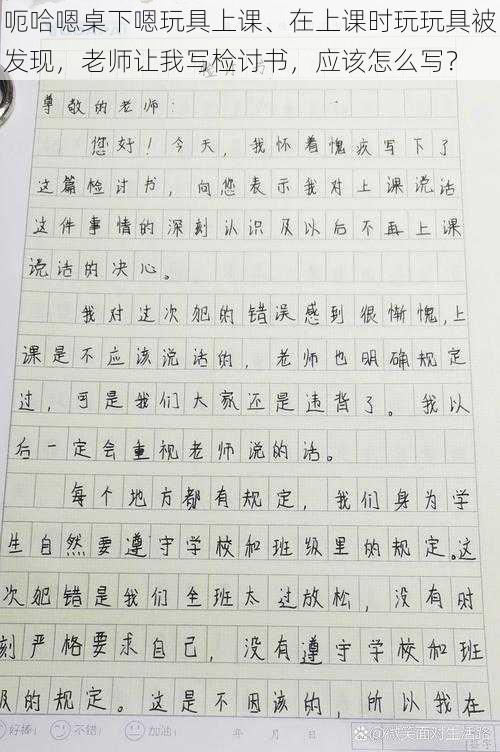 呃哈嗯桌下嗯玩具上课、在上课时玩玩具被
发现，老师让我写检讨书，应该怎么写？
尊敬的老师：
您好！今天，我怀着愧疚写下了
这篇检讨书，向您表示我对上课说话
这件事情的深刻认识及以后不再上课
说话的决心。
我对这次犯的错误感到很惭愧，上
课是不应该说话的，老师也明确规定
过，可是我们大家还是违背了。我以
后一定会重视老师说的话。
每个地方都有规定，我们身为学
生自然要遵守学校和班级里的规定。这
次犯错是我们全班太过放松，没有时
刻严格要求自己，没有遵守学校和班
级的规定。这是不因该的，所以我在
好棒！ 不错！ 加油！ 年 月 日
@微笑面对生活路